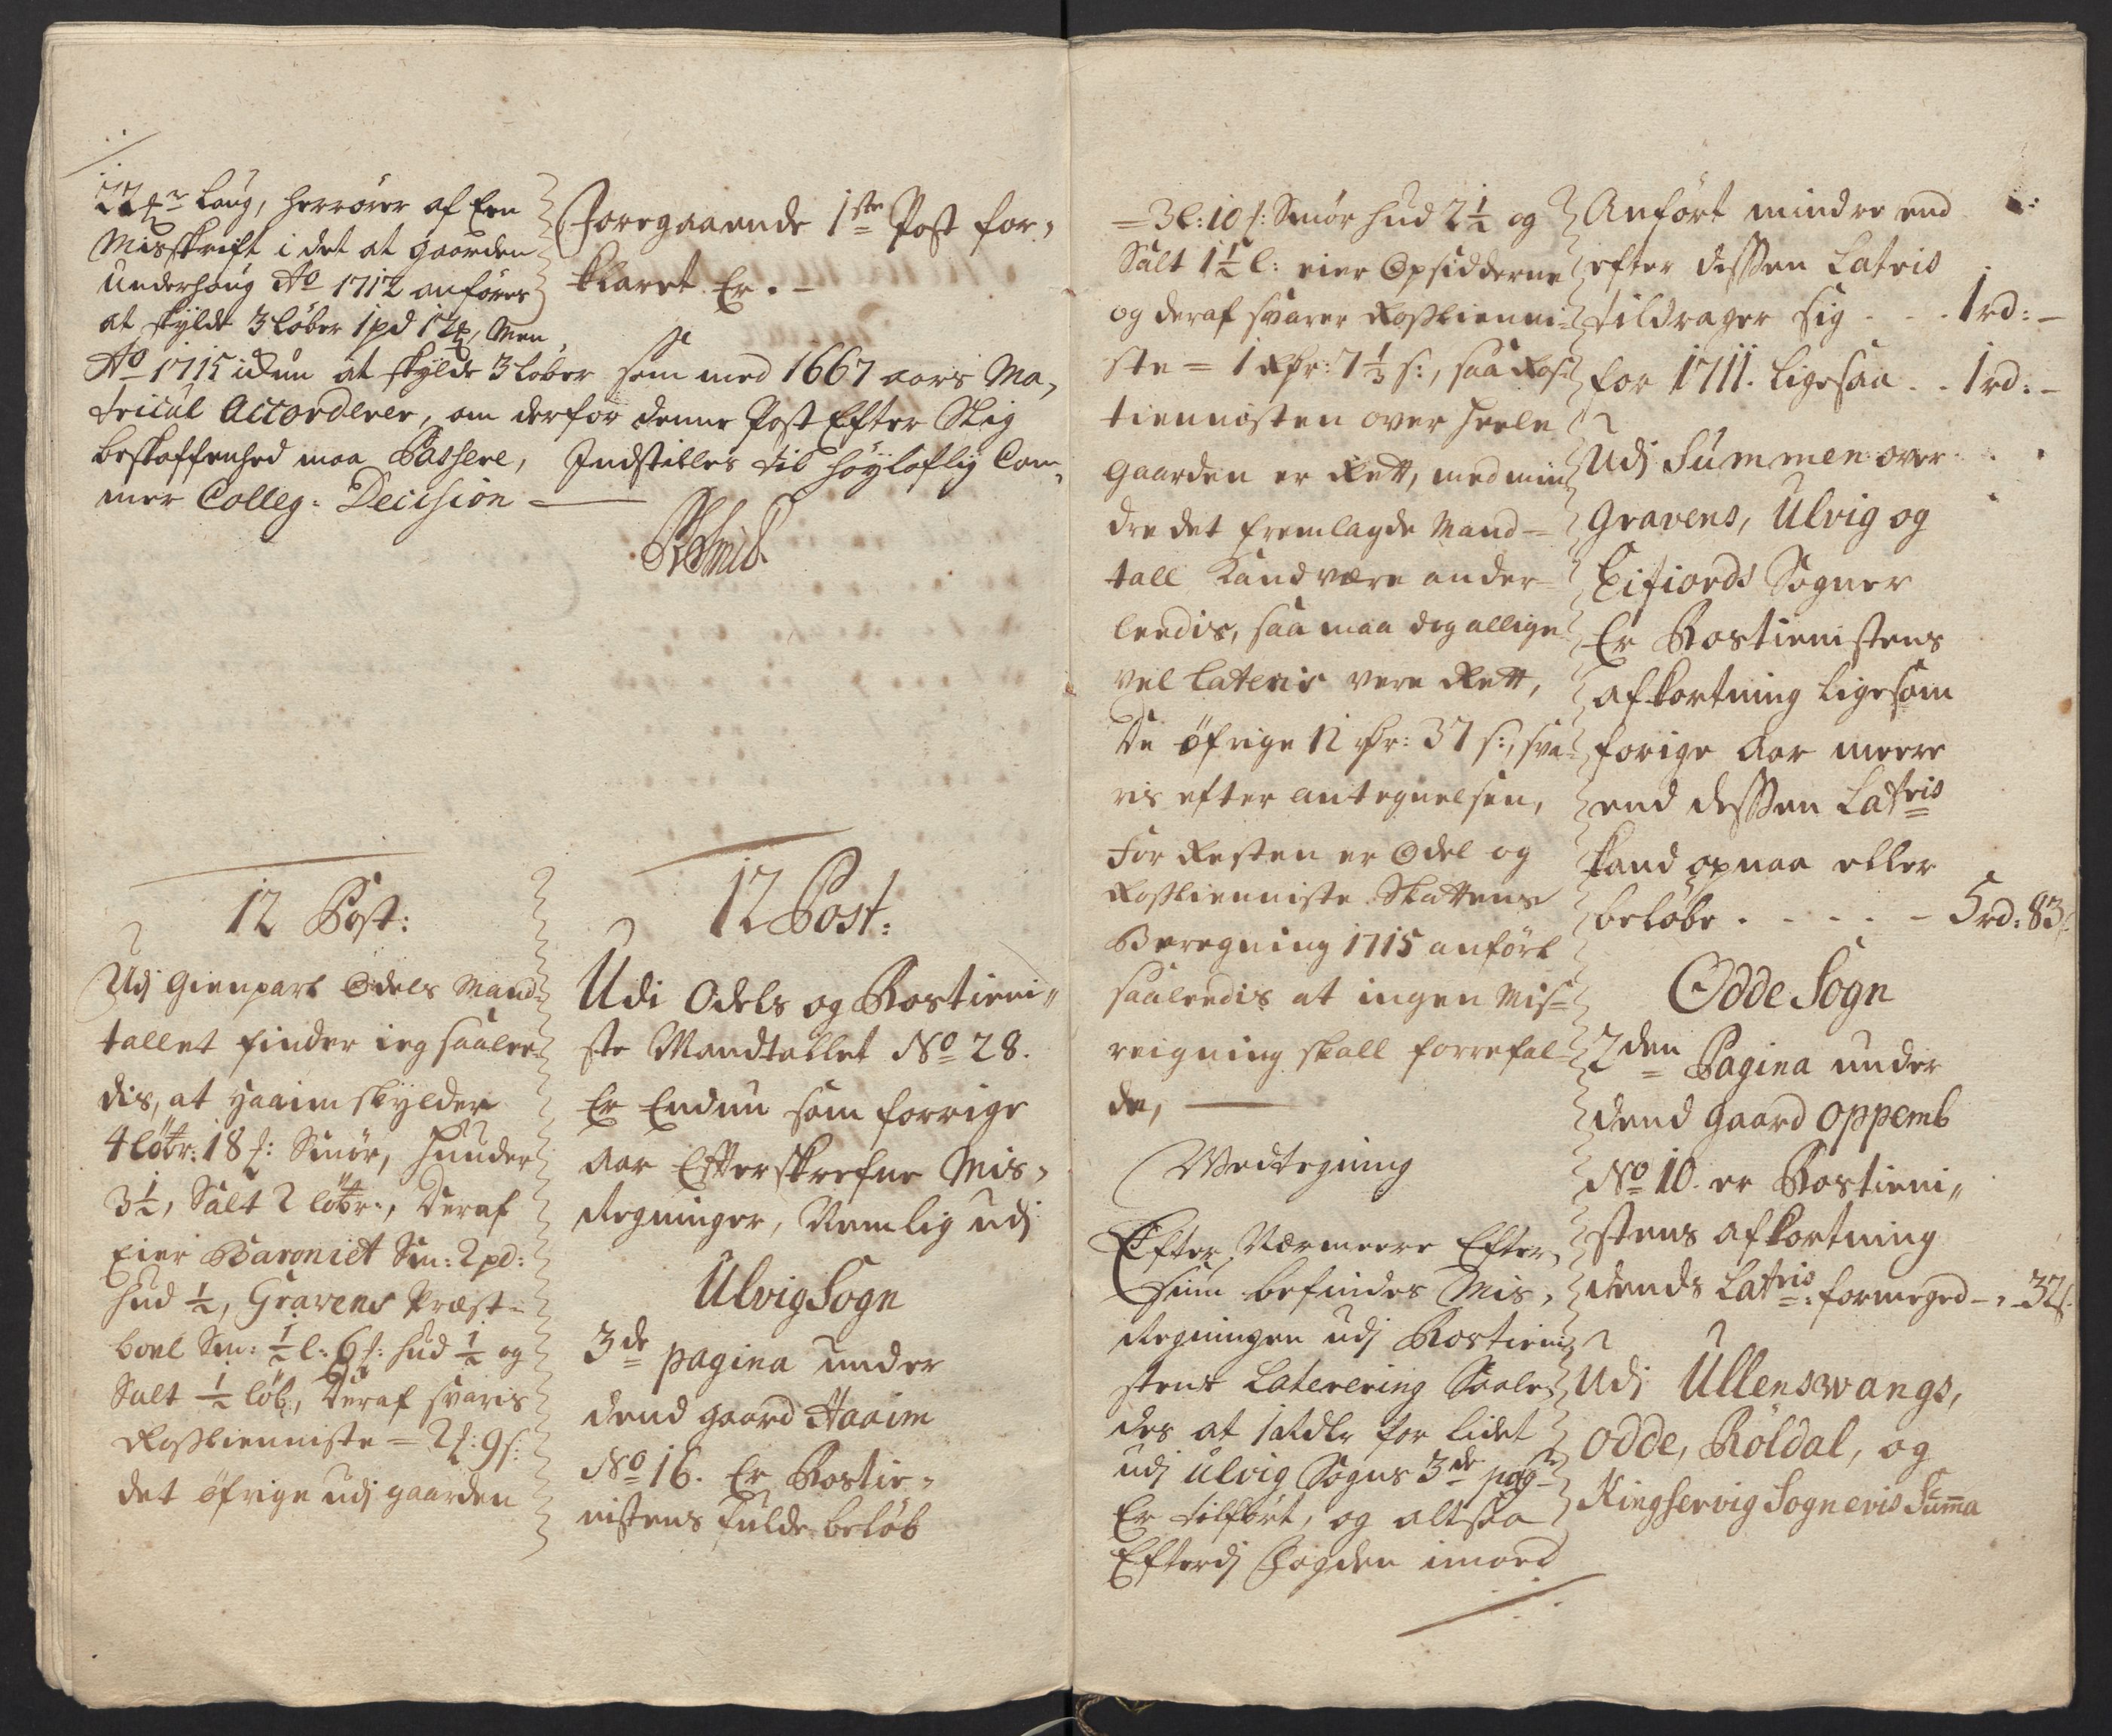 Laug, herrører af Een
Misskrift i det at gaarden
Underhaug Ao 1712 anføres
at skylde 3 Løber 1 pd 12, Men
Ao 1715 ickun at skylde 3 løber som med 1667 aars Ma-
tricul Accorderer, om derfor denne Post Efter Slig
beskaffenhed maa Passere, Indstilles til høyloflig Cam-
mer Colleg: Decision
Foregaaende 1ste Post for-
klaret Er. -
12 Post:
Udj Gienpart Odels Mand-
tallet finder ieg saalee-
dis, at Haaim skylder
4 løbr: 18 : Smør, Huuder
3 1/2, Salt 2 løbr:, Deraf
Eier Baroniet Sm: 2 pd:
hud 1/2, Gravens Præst-
boel Sm: 1/2 l: 6 : hud 1/2 og
Salt 1/2 løb, Deraf svaris
Rosstienniste = 2 : 9 s:
det øfrige udj gaarden
12 Post:
Udi Odels og Rostieni-
ste Mandtallet No 28.
Er Endnu som forrige
Aar Efterskrefne Mis-
Regninger, Nemlig udj
Ulvig Sogn
3de pagina under
dend gaard Haaim
No 16. Er Rostie-
nistens fulde beløb
= 3 l: 10 : Smør hud 2 1/2 og
Salt 1 1/2 l: eier Opsidderne
og deraf svarer Rosstienni-
ste = 1 : 7 1/3 s:, saa Ros-
tiennesten over heele
Gaarden er Rett, med min-
dre det fremlagde Mand-
tall kand være ander-
leedis, saa maa dog allige-
vel Lateris være Rett,
De øfrige 12 : 37 s:, sva-
ris efter antegnelsen,
For Resten er Odel og
Rosstienniste Skattens
Beregning 1715 anført
saaledis at ingen Mis-
reigning skall forrefal-
de,
Wedtegning
Efter Nærmeere Efter-
siun befindes Mis-
Regningen udj Rostieni-
stens Laterering Saale-
des at 1 Rdlr for lidet
udj Ulvig Sogns 3de pag
Er tilført, og altsaa
Efterdj Fogden imod
Anført mindre end
efter dessen Latris
tildrager sig - - - 1 rd: -
for 1711. ligesaa - - 1 rd: -
Udj Summen over
Gravens, Ulvig og
Eifiords Sogner
Er Rostienistens
afkortning ligesom
forige Aar meere
end dessen Latris
kand opnaa eller
beløbe - - - - - 5 rd: 83
Odde Sogn
2den Pagina under
dend gaard Oppemb
No 10. er Rostieni-
stens afkortning
dends Latris: formeged - - 32
Udj Ullenswangs,
Odde, Röldal, og
Kingservig Sogneris Summa